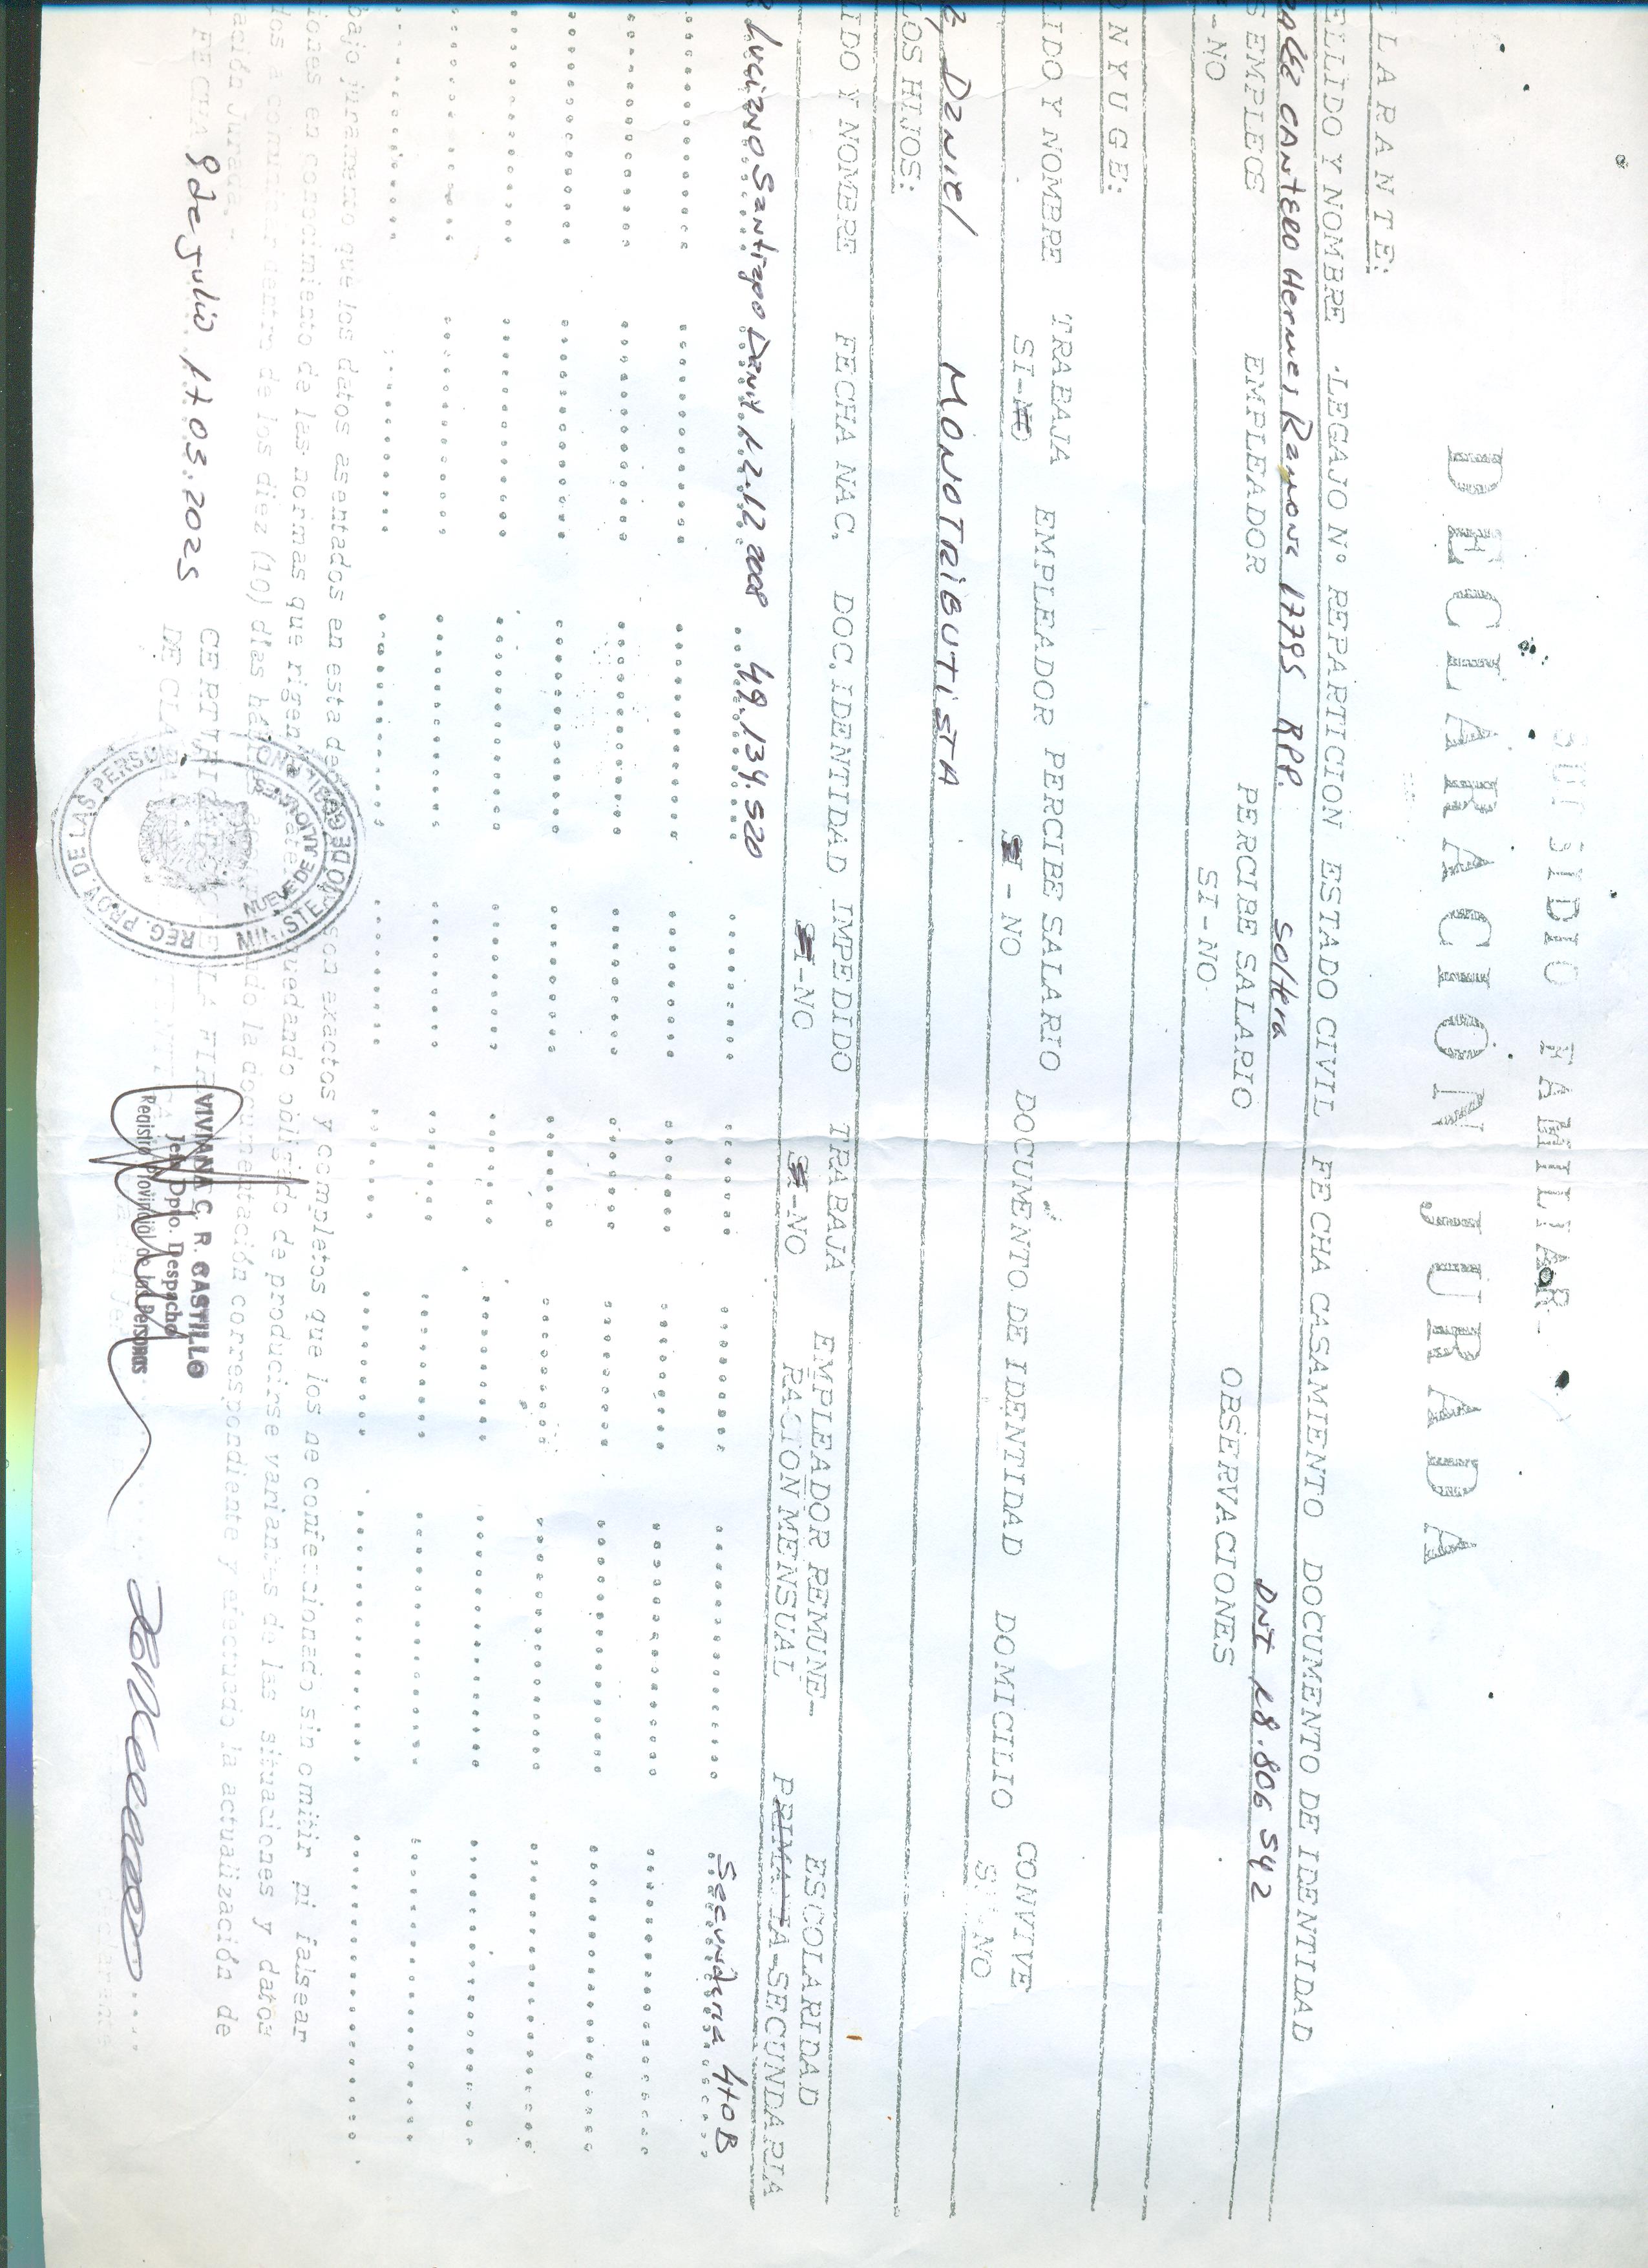 SUBSIDIO FAMILIAR
DECLARACION JURADA
LARANTE:
ELLIDO Y NOMBRE LEGAJO Nº REPARTICION ESTADO CIVIL FECHA CASAMIENTO DOCUMENTO DE IDENTIDAD
CANTERO Hermes Ramona 17795 RPP. Soltera DNI 18.806 542
S EMPLEOS EMPLEADOR PERCIBE SALARIO OBSERVACIONES
-NO SI-NO
ONYUGE:
LIDO Y NOMBRE TRABAJA EMPLEADOR PERCIBE SALARIO DOCUMENTO DE IDENTIDAD DOMICILIO CONVIVE
SI-NO SI - NO SI-NO
Daniel MONOTRIBUTISTA
LOS HIJOS:
LIDO Y NOMBRE FECHA NAC. DOC. IDENTIDAD IMPEDIDO TRABAJA EMPLEADOR REMUNE- ESCOLARIDAD
SI-NO SI-NO RACION MENSUAL PRIMARIA-SECUNDARIA
Luciano Santiago 12.12 2008 49.134.520 Secundaria 4to B
bajo juramento que los datos asentados en esta son exactos y completos que los he confeccionado sin omitir ni falsear
iones en conocimiento de las normas que rigen quedando obligado de producirse variantes de las situaciones y datos
dos a comunicar dentro de los diez (10) días la documentación correspondiente y efectuado la actualización de
ación Jurada.-
FECHA 9 de Julio 17.03.2025
CERTIFICO LA FIRMA
MINISTERIO DE GOBIERNO
REG. PROV. DE LAS PERSO
NUEVE DE JULIO
VIVIANA C. R. CASTILLO
Jefe Dpto. Despacho
Registro Provincial de las Personas